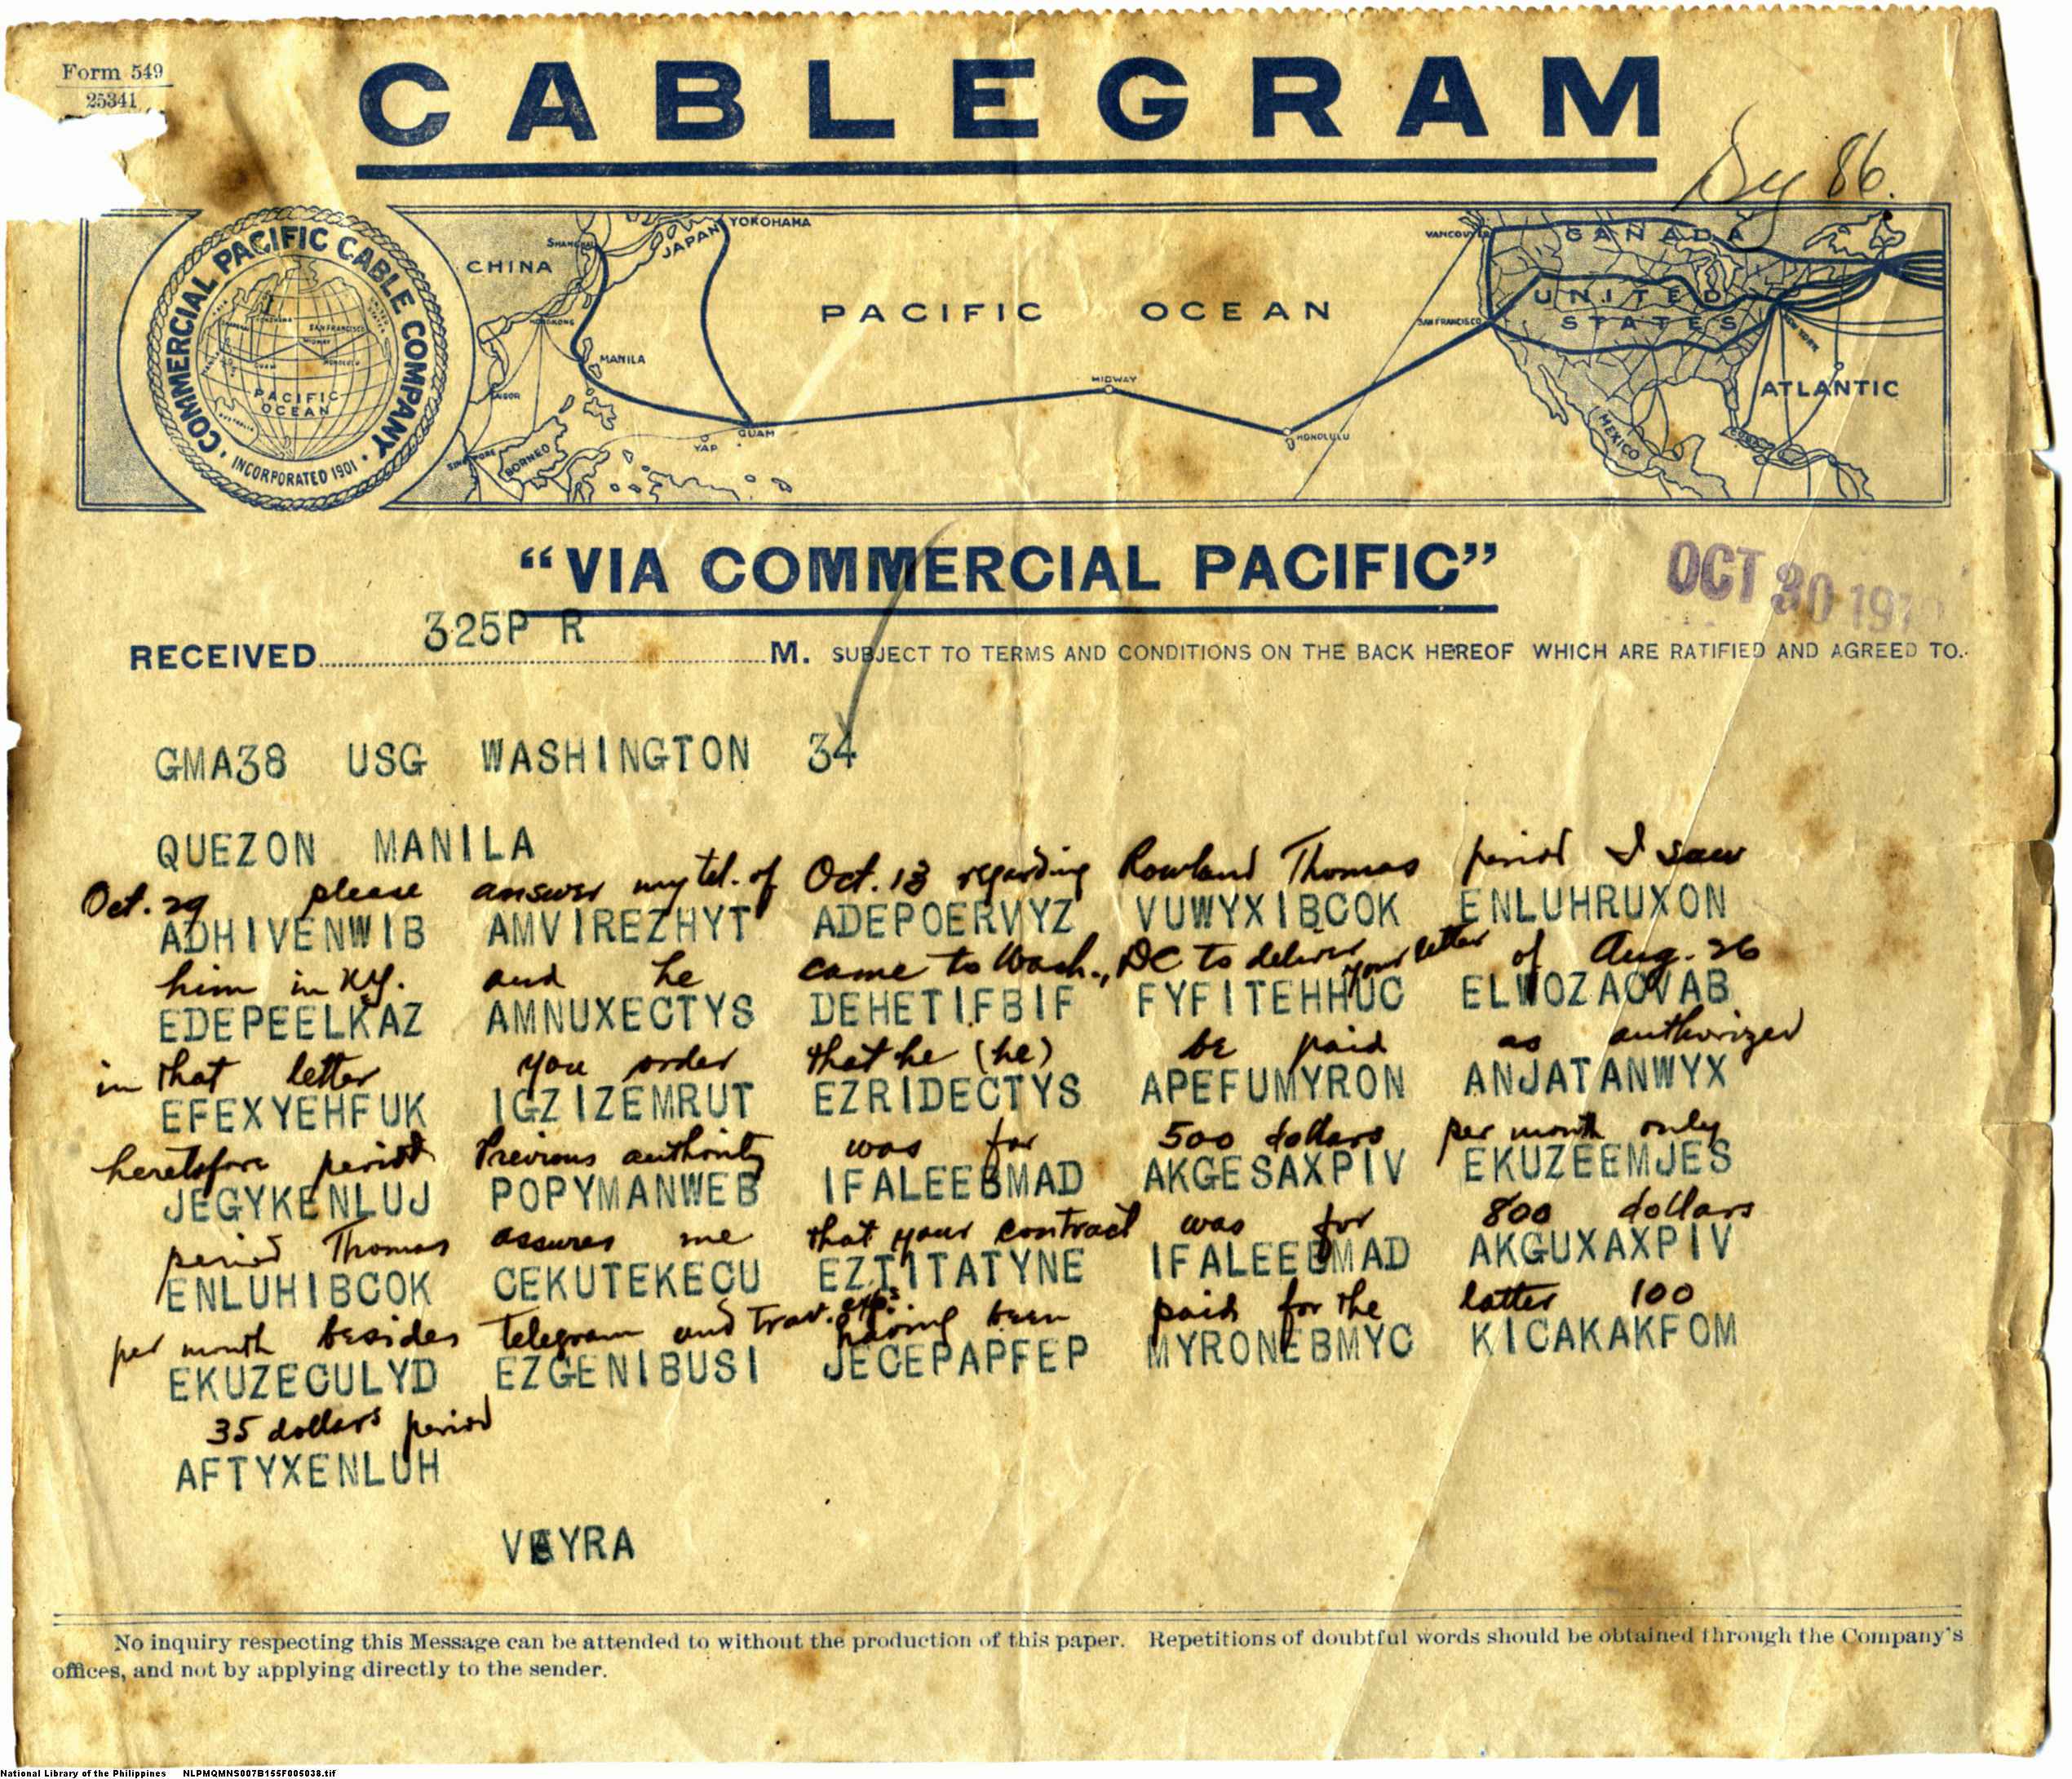 Form 549
25341
CABLEGRAM
Sy 86.
COMMERCIAL PACIFIC CABLE COMPANY
INCORPORATED 1901
PACIFIC
OCEAN
SAN FRANCISCO
CHINA
SHANGHAI
JAPAN
YOKOHAMA
HONGKONG
MANILA
SINGAPORE
BORNEO
YAP
GUAM
PACIFIC OCEAN
MIDWAY
HONOLULU
VANCOUVER
SAN FRANCISCO
CANADA
UNITED
STATES
NEW YORK
ATLANTIC
MEXICO
"VIA COMMERCIAL PACIFIC"
OCT 30 19
RECEIVED 325P R M. SUBJECT TO TERMS AND CONDITIONS ON THE BACK HEREOF WHICH ARE RATIFIED AND AGREED TO.
GMA38 USG WASHINGTON 34
QUEZON MANILA
Oct. 29 please answer my tel. of Oct. 13 regarding Rowland Thomas period I saw
ADHIVENWIB AMVIREZHYT ADEPOERVYZ VUWYXIBCOK ENLUHRUXON
him in NY. and he came to Wash., DC to deliver your letter of Aug. 26
EDEPEELKAZ AMNUXECTYS DEHETIFBIF FYFITEHHUC ELWOZACVAB
in that letter you order that he (he) be paid as authorized
EFEXYEHFUK IGZIZEMRUT EZRIDECTYS APEFUMYRON ANJATANWYX
heretofore period Previous authority was for 500 dollars per month only
JEGYKENLUJ POPYMANWEB IFALEEBMAD AKGESAXPIV EKUZEEMJES
period Thomas assures me that your contract was for 800 dollars
ENLUHIBCOK CEKUTEKECU EZTITATYNE IFALEEBMAD AKGUXAXPIV
per month besides telegram and trav. exps. having been paid for the latter 100
EKUZECULYD EZGENIBUSI JECEPAPFEP MYRONEBMYC KICAKAKFOM
35 dollars period
AFTYXENLUH
VEYRA
No inquiry respecting this Message can be attended to without the production of this paper. Repetitions of doubtful words should be obtained through the Company's
offices, and not by applying directly to the sender.
National Library of the Philippines NLPMQMNS007B155F005038.tif